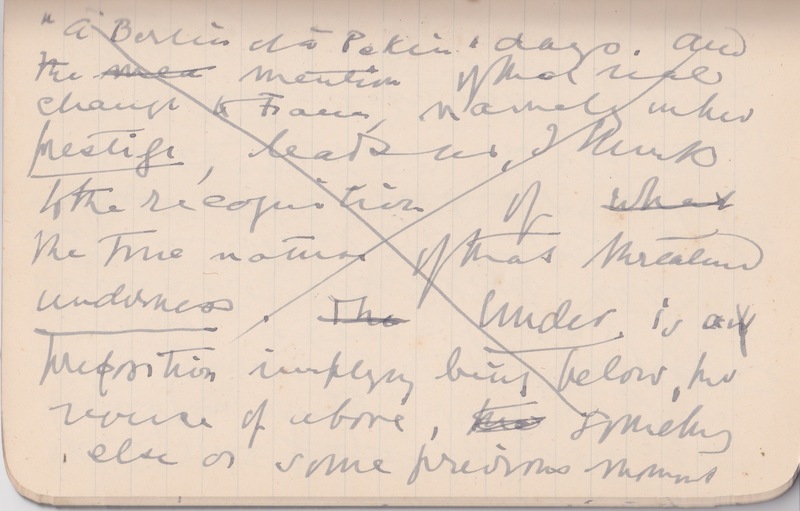 "à Berlin et à Pekin" days. And
the mea mention of that real
change to France, namely in her
prestige, leads us, I think
to the recognition of what
the true nature of that threatened
underness. The Under is a
preposition implying being below, the
reverse of above, something
else or some previous moment